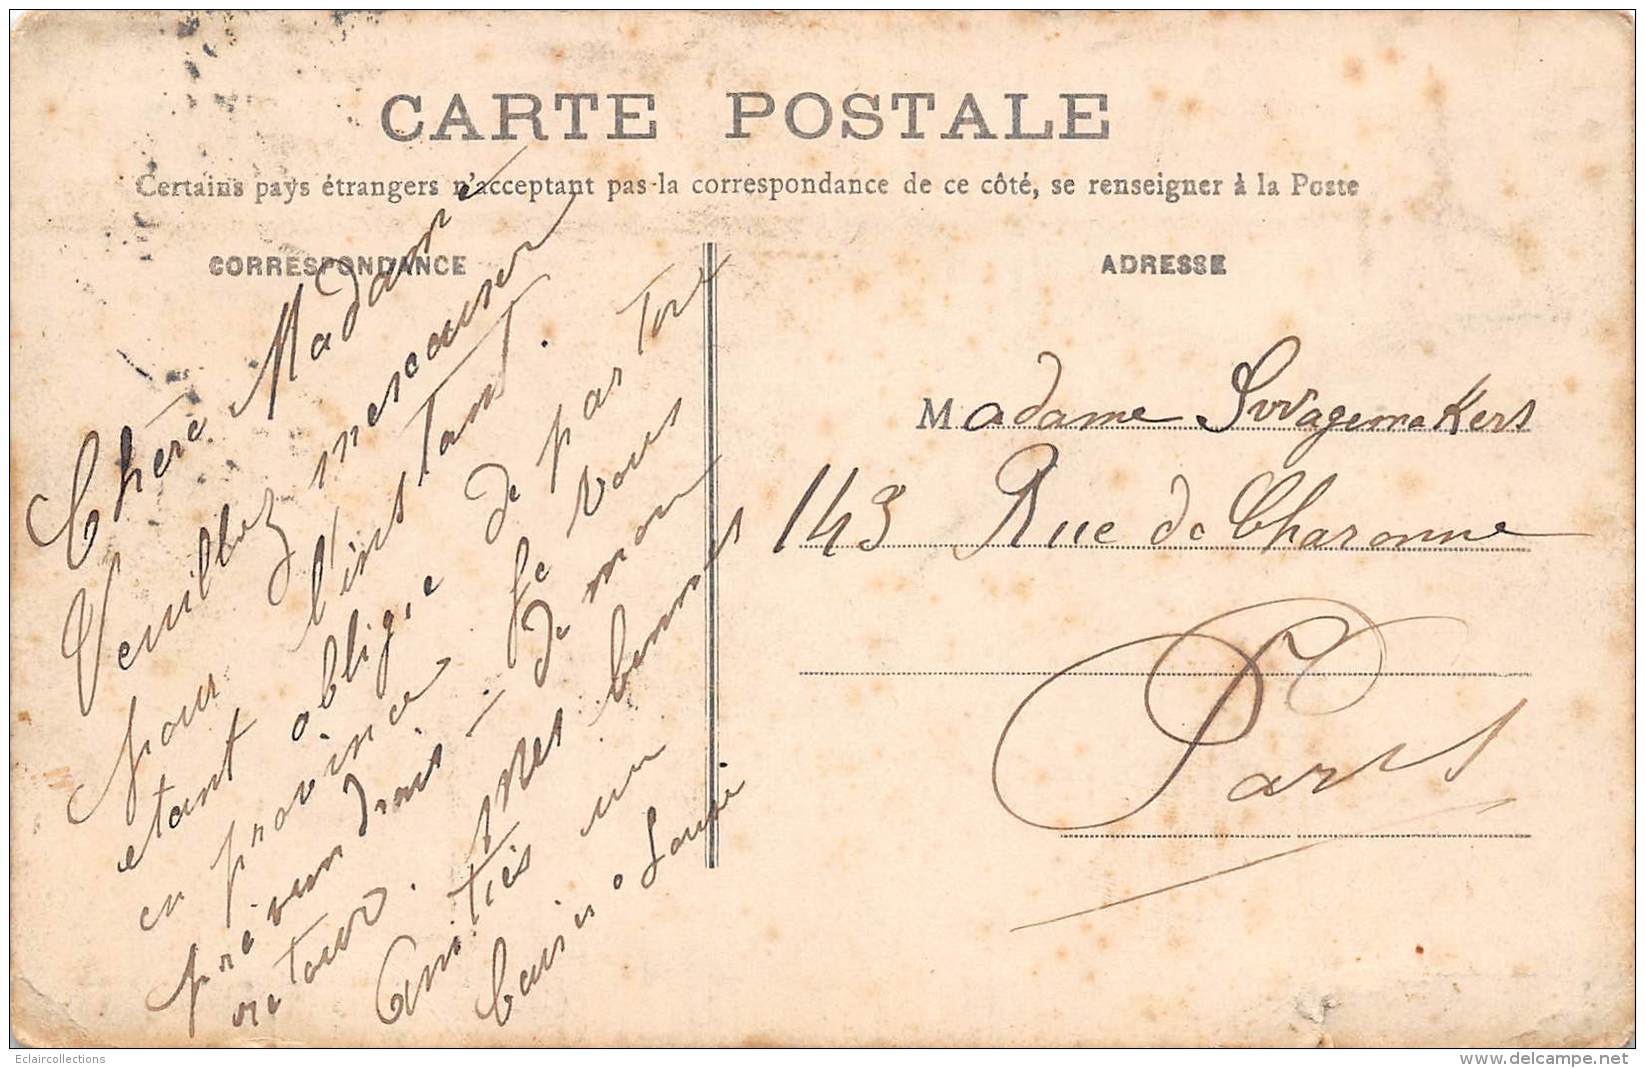 CARTE POSTALE
Certains pays étrangers n'acceptant pas la correspondance de ce côté, se renseigner à la Poste
CORRESPONDANCE
ADRESSE
Chère Madame
Veuillez m'escuser
pour l'instant.
etant obligie de partir
en province. Je vous
previendrais de mon
retour. Mes bonnes
Amitiés un
baiser a Louise
Madame Swagemakers
143 Rue de Charonne
Paris
Eclaircollections
www.delcampe.net